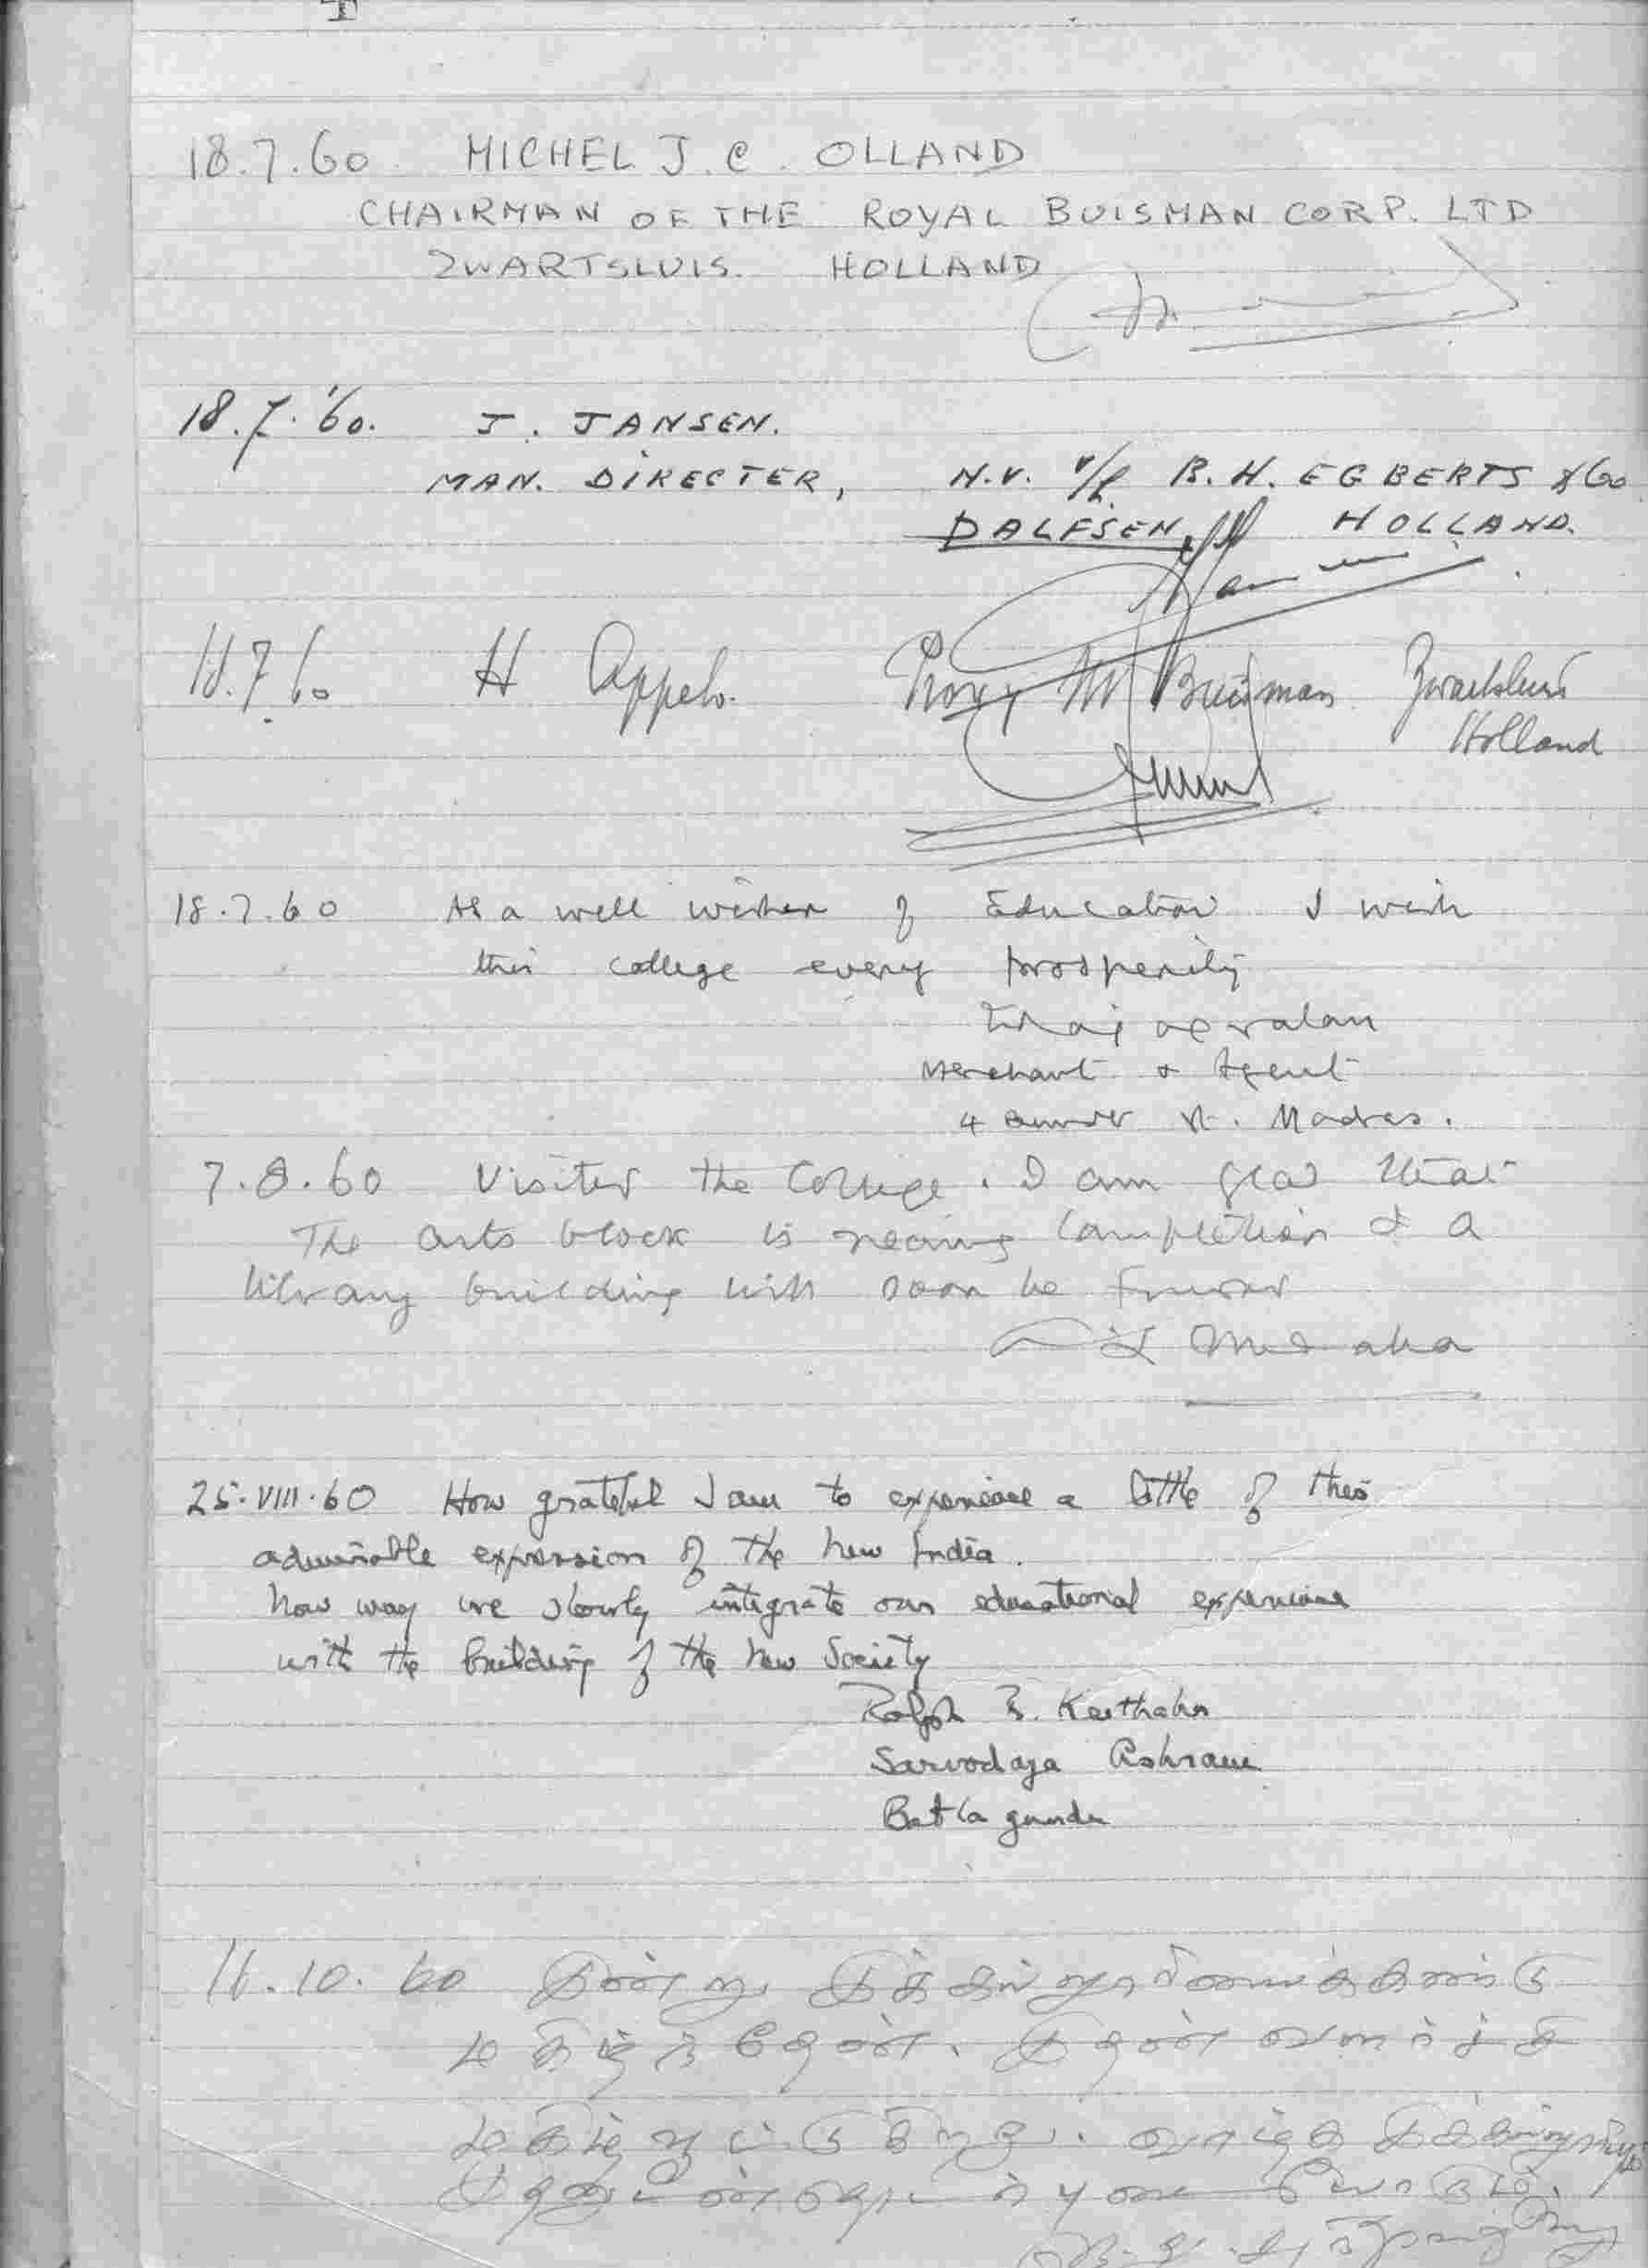 18.7.60 MICHEL J. C. OLLAND
CHAIRMAN OF THE ROYAL BUISMAN CORP. LTD
ZWARTSLUIS. HOLLAND
18.7.'60. J. JANSEN.
MAN. DIRECTER, N.V. v/h. B.H. EGBERTS & Co
DALFSEN, HOLLAND.
18.7.60 H Appelo. Buisman Zwartsluis
Holland
18.7.60 As a well wisher of Education I wish
this college every prosperity
Merchant & Agent
4 St. Madras.
7.8.60 Visited the College. I am glad that
The arts block is nearing completion & a
library building will soon be
25.VIII.60 How grateful I am to experience a little of this
admirable expression of the new India.
Now may we slowly integrate our educational experience
with the building of the new Society
Ralph R. Keithahn
Sarvodaya Ashram
Batlagundu
16.10.60 இன்று இக்கல்லூரியைக்கண்டு
மகிழ்ந்தேன். இதன் வளர்ச்சி
மகிழ்வூட்டுகிறது. வாழ்க